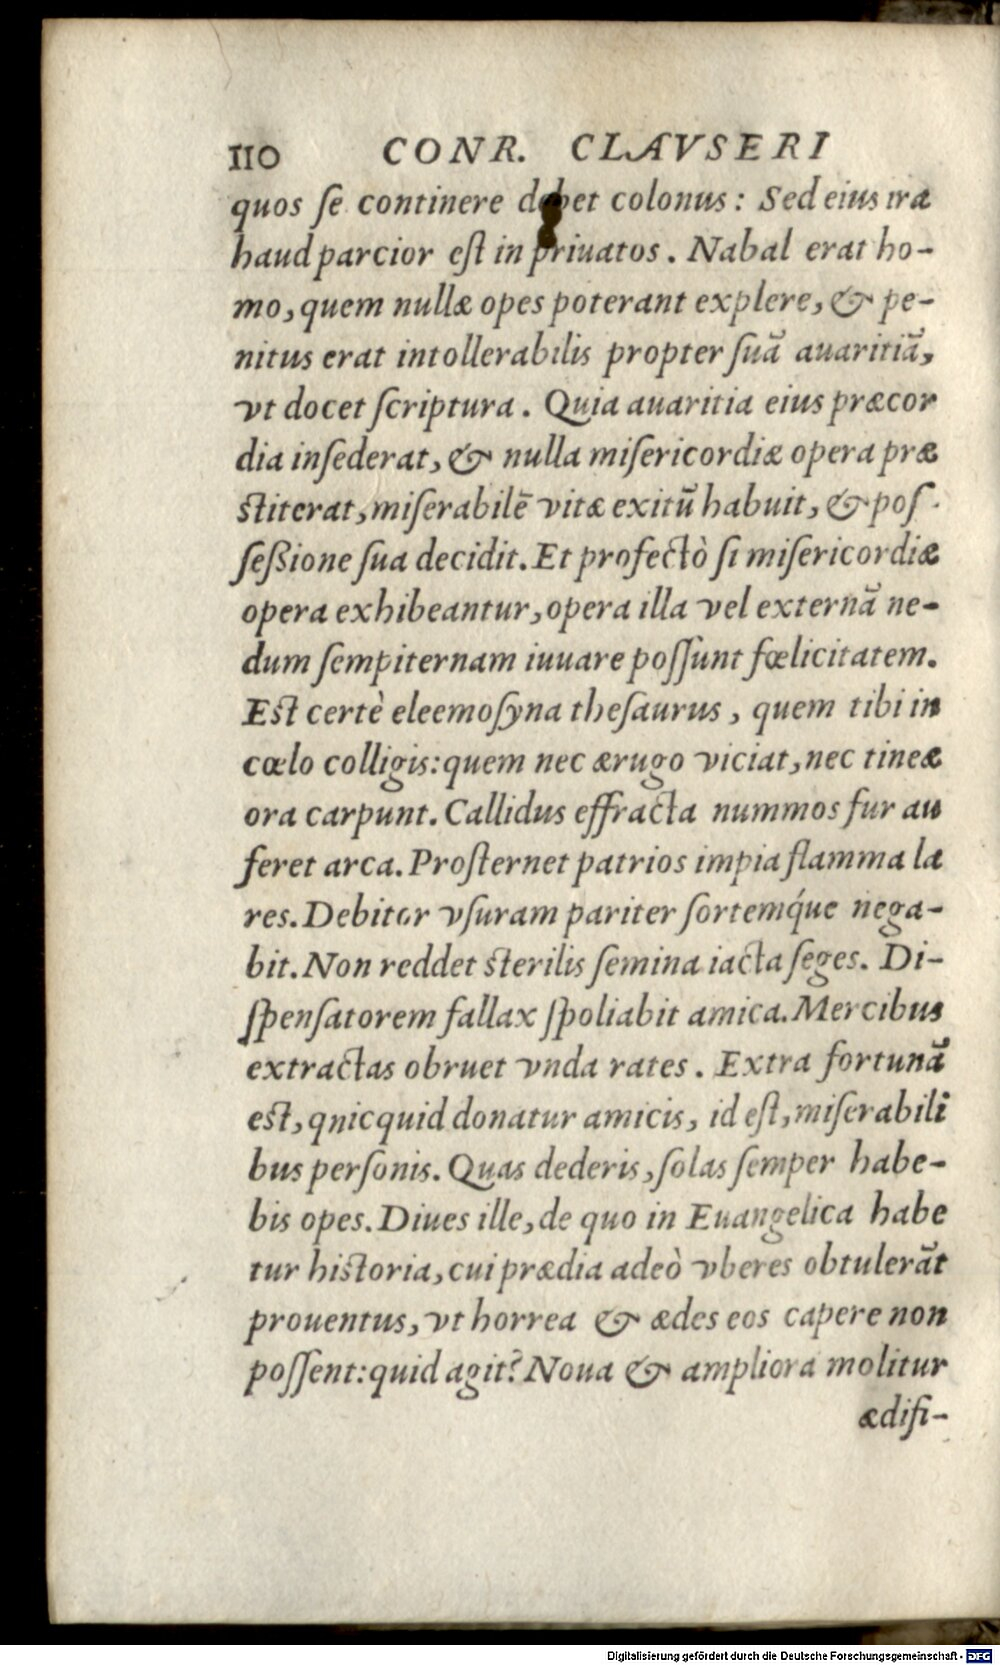 110 CONR. CLAVSERI
quos ſe continere debet colonus: Sed eius ira
haud parcior eſt in priuatos. Nabal erat ho-
mo, quem nullæ opes poterant explere, & pe-
nitus erat intollerabilis propter ſuā auaritiā,
vt docet ſcriptura. Quia auaritia eius præcor
dia inſederat, & nulla miſericordiæ opera præ
ſtiterat, miſerabilē vitæ exitū habuit, & poſ-
ſeßione ſua decidit. Et profectò ſi miſericordiæ
opera exhibeantur, opera illa vel externā ne-
dum ſempiternam iuuare poſſunt fœlicitatem.
Eſt certè eleemoſyna theſaurus, quem tibi in
cœlo colligis: quem nec ærugo viciat, nec tineæ
ora carpunt. Callidus effracta nummos fur au
feret arca. Proſternet patrios impia flamma la
res. Debitor vſuram pariter ſortemq́ue nega-
bit. Non reddet ſterilis ſemina iacta ſeges. Di-
ſpenſatorem fallax ſpoliabit amica. Mercibus
extractas obruet vnda rates. Extra fortunā
eſt, qnicquid donatur amicis, id eſt, miſerabili
bus perſonis. Quas dederis, ſolas ſemper habe-
bis opes. Diues ille, de quo in Euangelica habe
tur hiſtoria, cui prædia adeò vberes obtulerāt
prouentus, vt horrea & ædes eos capere non
poſſent: quid agit? Noua & ampliora molitur
ædifi-
Digitalisierung gefördert durch die Deutsche Forschungsgemeinschaft - DFG